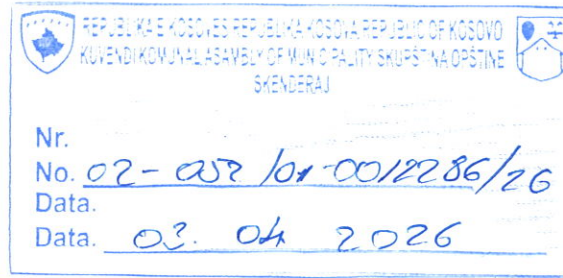 REPUBLIKA E KOSOVËS REPUBLIKA KOSOVA REPUBLIC OF KOSOVO
KUVENDI KOMUNAL ASAMBLY OF MUNICIPALITY SKUPŠTINA OPŠTINE
SKENDERAJ
Nr.
No. 02-052/01-0012286/26
Data.
Data. 02. 04 2026